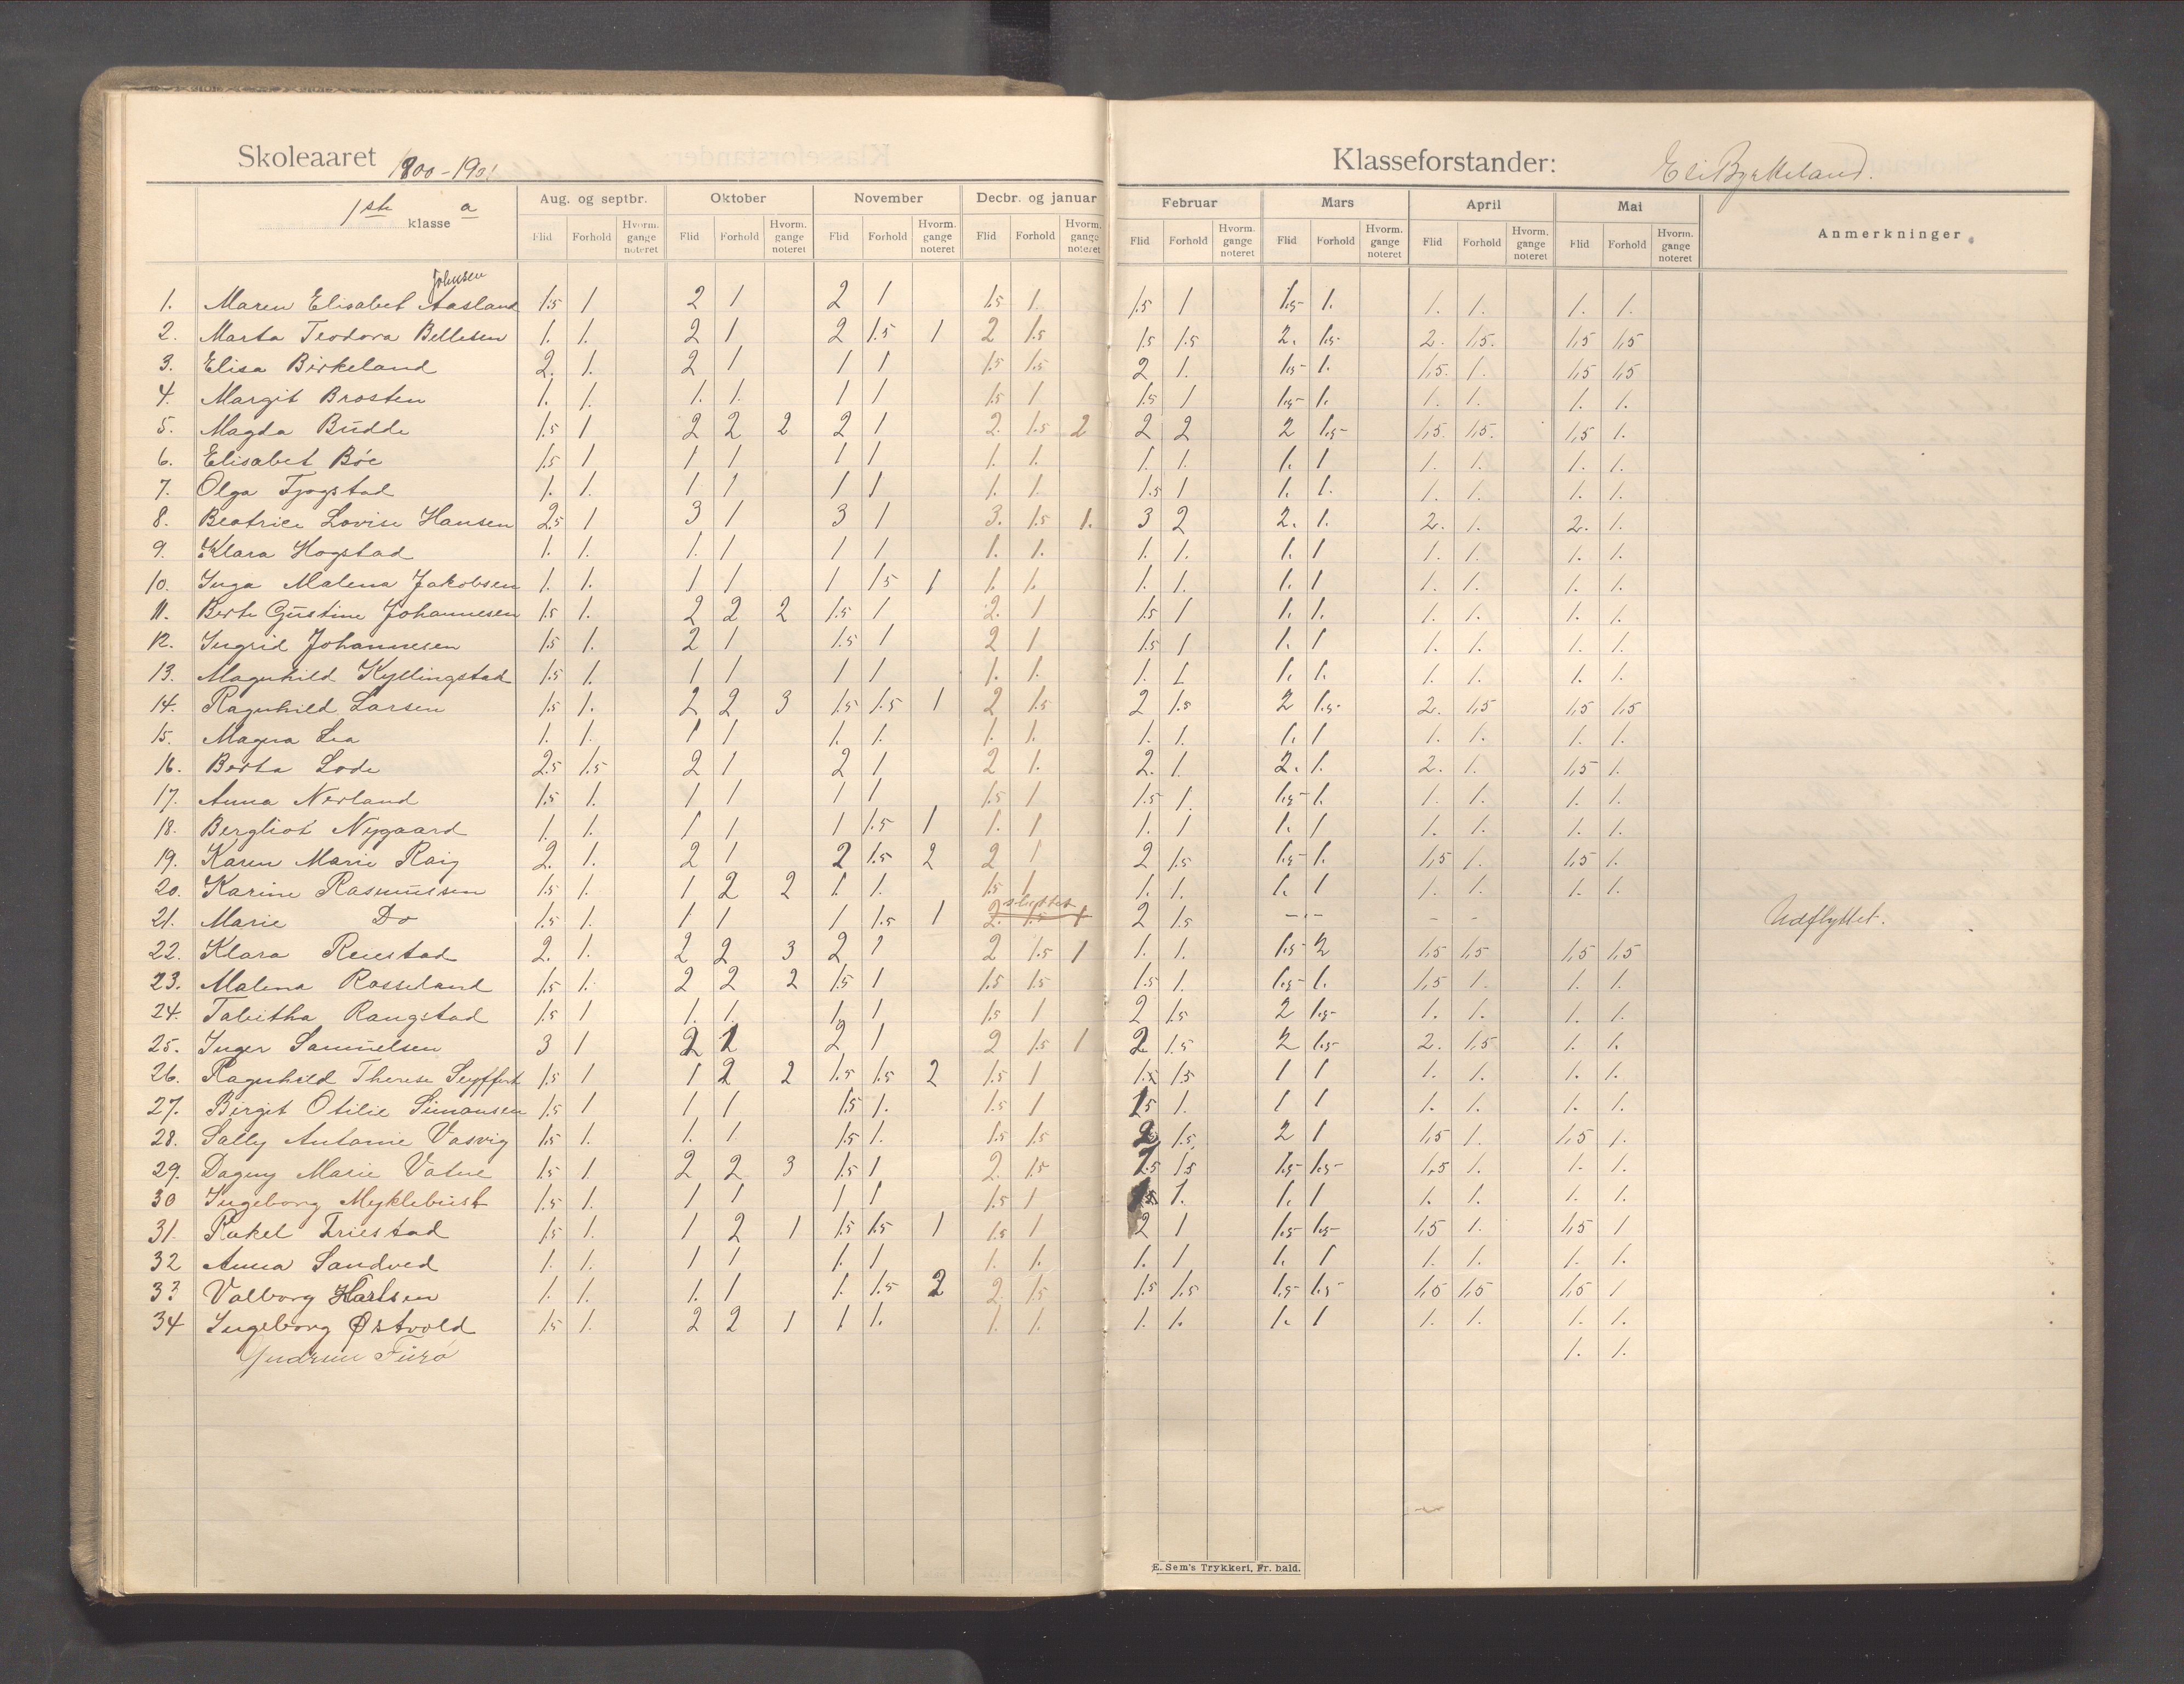 Skoleaaret 1900-1901 Klasseforstander: Eli Byrkeland.
1ste klasse a
Aug. og septbr. Oktober November Decbr. og januar Februar Mars April Mai Anmerkninger
Flid Forhold Hvorm. gange noteret Flid Forhold Hvorm. gange noteret Flid Forhold Hvorm. gange noteret Flid Forhold Hvorm. gange noteret Flid Forhold Hvorm. gange noteret Flid Forhold Hvorm. gange noteret Flid Forhold Hvorm. gange noteret Flid Forhold Hvorm. gange noteret
Johnsen
1. Maren Elisabet Aasland 1.5 1 2 1 2 1 1.5 1. 1.5 1 1.5- 1. 1. 1. 1. 1.
2. Marta Teodora Bellesen 1. 1. 2 1 2 1.5 1 2 1.5 1.5 1.5 2. 1.5- 2. 1,5. 1,5 1,5
3. Elisa Birkeland 2. 1. 2 1 1 1 1.5 1.5 2 1. 1.5- 1. 1,5. 1. 1,5 1,5
4. Margit Brosten 1. 1. 1. 1. 1 1 1.5 1 1.5 1 1.5- 1. 1. 1. 1. 1.
5. Magda Budde 1.5 1 2 2 2 2 1 2. 1.5 2 2 2 2 1.5- 1,5. 1,5. 1,5 1.
6. Elisabet Böe 1.5 1 1 1 1 1 1. 1. 1. 1. 1. 1 1. 1. 1. 1.
7. Olga Tjogstad 1. 1. 1 1 1 1 1. 1. 1.5 1 1. 1. 1. 1. 1. 1.
8. Beatrice Lovise Hansen 2.5 1 3 1 3 1 3. 1.5 1. 3 2 2. 1. 2. 1. 2. 1.
9. Klara Hogstad 1. 1. 1. 1 1 1 1. 1. 1. 1. 1. 1 1. 1. 1. 1.
10. Inga Malena Jakobsen 1. 1. 1 1 1 1.5 1 1. 1. 1. 1. 1. 1 1. 1. 1. 1.
11. Berte Gustine Johannesen 1.5 1. 2 2 2 1.5 1 2. 1 1.5 1 1. 1. 1. 1. 1. 1.
12. Ingrid Johannesen 1.5 1. 2 1 1.5 1 2 1 1.5 1 1. 1 1. 1. 1. 1.
13. Magnhild Kyllingstad 1.5 1. 1 1 1 1 1. 1. 1. 1 1. 1. 1. 1. 1. 1.
14. Ragnhild Larsen 1.5 1. 2 2 3 1.5 1.5 1 2 1.5 2 1.5 2 1.5- 2. 1,5 1,5 1,5
15. Magna Lea 1. 1. 1 1 1. 1. 1. 1. 1. 1. 1. 1 1. 1. 1. 1.
16. Berta Lode 2.5 1.5 2 1 2 1 2 1. 2. 1. 2. 1. 2. 1. 1,5 1.
17. Anna Nerland 1.5 1. 1 1 1 1 1.5 1 1.5 1. 1.5- 1. 1. 1. 1. 1.
18. Bergliot Nygaard 1. 1. 1 1 1 1.5 1 1. 1 1. 1 1. 1 1. 1. 1. 1.
19. Karen Marie Raig 2. 1. 2 1 2 1.5 2 2 1 2 1.5 1.5- 1. 1,5 1. 1,5 1.
20. Karine Rasmussen 1.5 1. 1 2 2 1. 1. 1.5 1 1. 1. 1. 1 1. 1. 1. 1.
21. Marie Do 1.5 1. 1 1 1 1.5 1 2. 1.5 1 2 1.5 - . - - - Udflyttet.
22. Klara Reiestad 2. 1. 2 2 3 2 1 2 1.5 1 1. 1. 1.5- 2 1,5 1,5 1,5 1,5
23. Malena Rosseland 1.5 1. 2 2 2 1.5 1 1.5 1.5 1.5 1. 1.5- 1. 1,5 1. 1. 1.
24. Tabitha Rangstad 1.5 1 1. 1. 1. 1 1.5 1 2 1.5 2 1.5- 1. 1. 1. 1.
25. Inger Samuelsen 3 1 2 1 2 1 2 1.5 1 2 1.5 2 1.5- 2. 1,5 1. 1.
26. Ragnhild Therese Seyffert 1.5 1 1 2 2 1.5 1.5 2 1.5 1 1.5 1.5 1 1 1. 1. 1. 1.
27. Birgit Otilie Simonsen 1.5 1 1 1 1.5 1. 1.5 1 1.5 1. 1 1 1. 1. 1. 1.
28. Sally Antonie Vasvig 1.5 1. 1. 1 1.5 1. 1.5 1.5 2 1.5 2 1 1,5 1. 1,5 1.
29. Dagny Marie Vatne 1.5 1 2 2 3 1.5 1 2. 1.5 1.5 1.5 1.5- 1.5- 1,5 1. 1. 1.
30 Ingeborg Myklebust 1.5 1. 1 1 1 1 1.5 1 1.5 1. 1. 1 1. 1. 1. 1.
31. Rakel Friestad 1.5 1. 1 2 1 1.5 1.5 1 1.5 1 2 1 1.5- 1.5- 1,5 1. 1,5 1
32 Anna Sandved 1. 1. 1 1 1. 1 1. 1. 1. 1 1. 1 1. 1. 1. 1.
33 Valborg Karlsen 1. 1. 1. 1 1. 1.5 2 2. 1.5 1.5 1.5 1.5- 1.5- 1,5 1,5 1,5 1
34 Ingeborg Østvold 1.5 1. 2 2 1 1 1. 1. 1. 1. 1. 1. 1 1. 1. 1. 1.
Gudrun Furö 1. 1.
E. Sem's Trykkeri, Fr. hald.